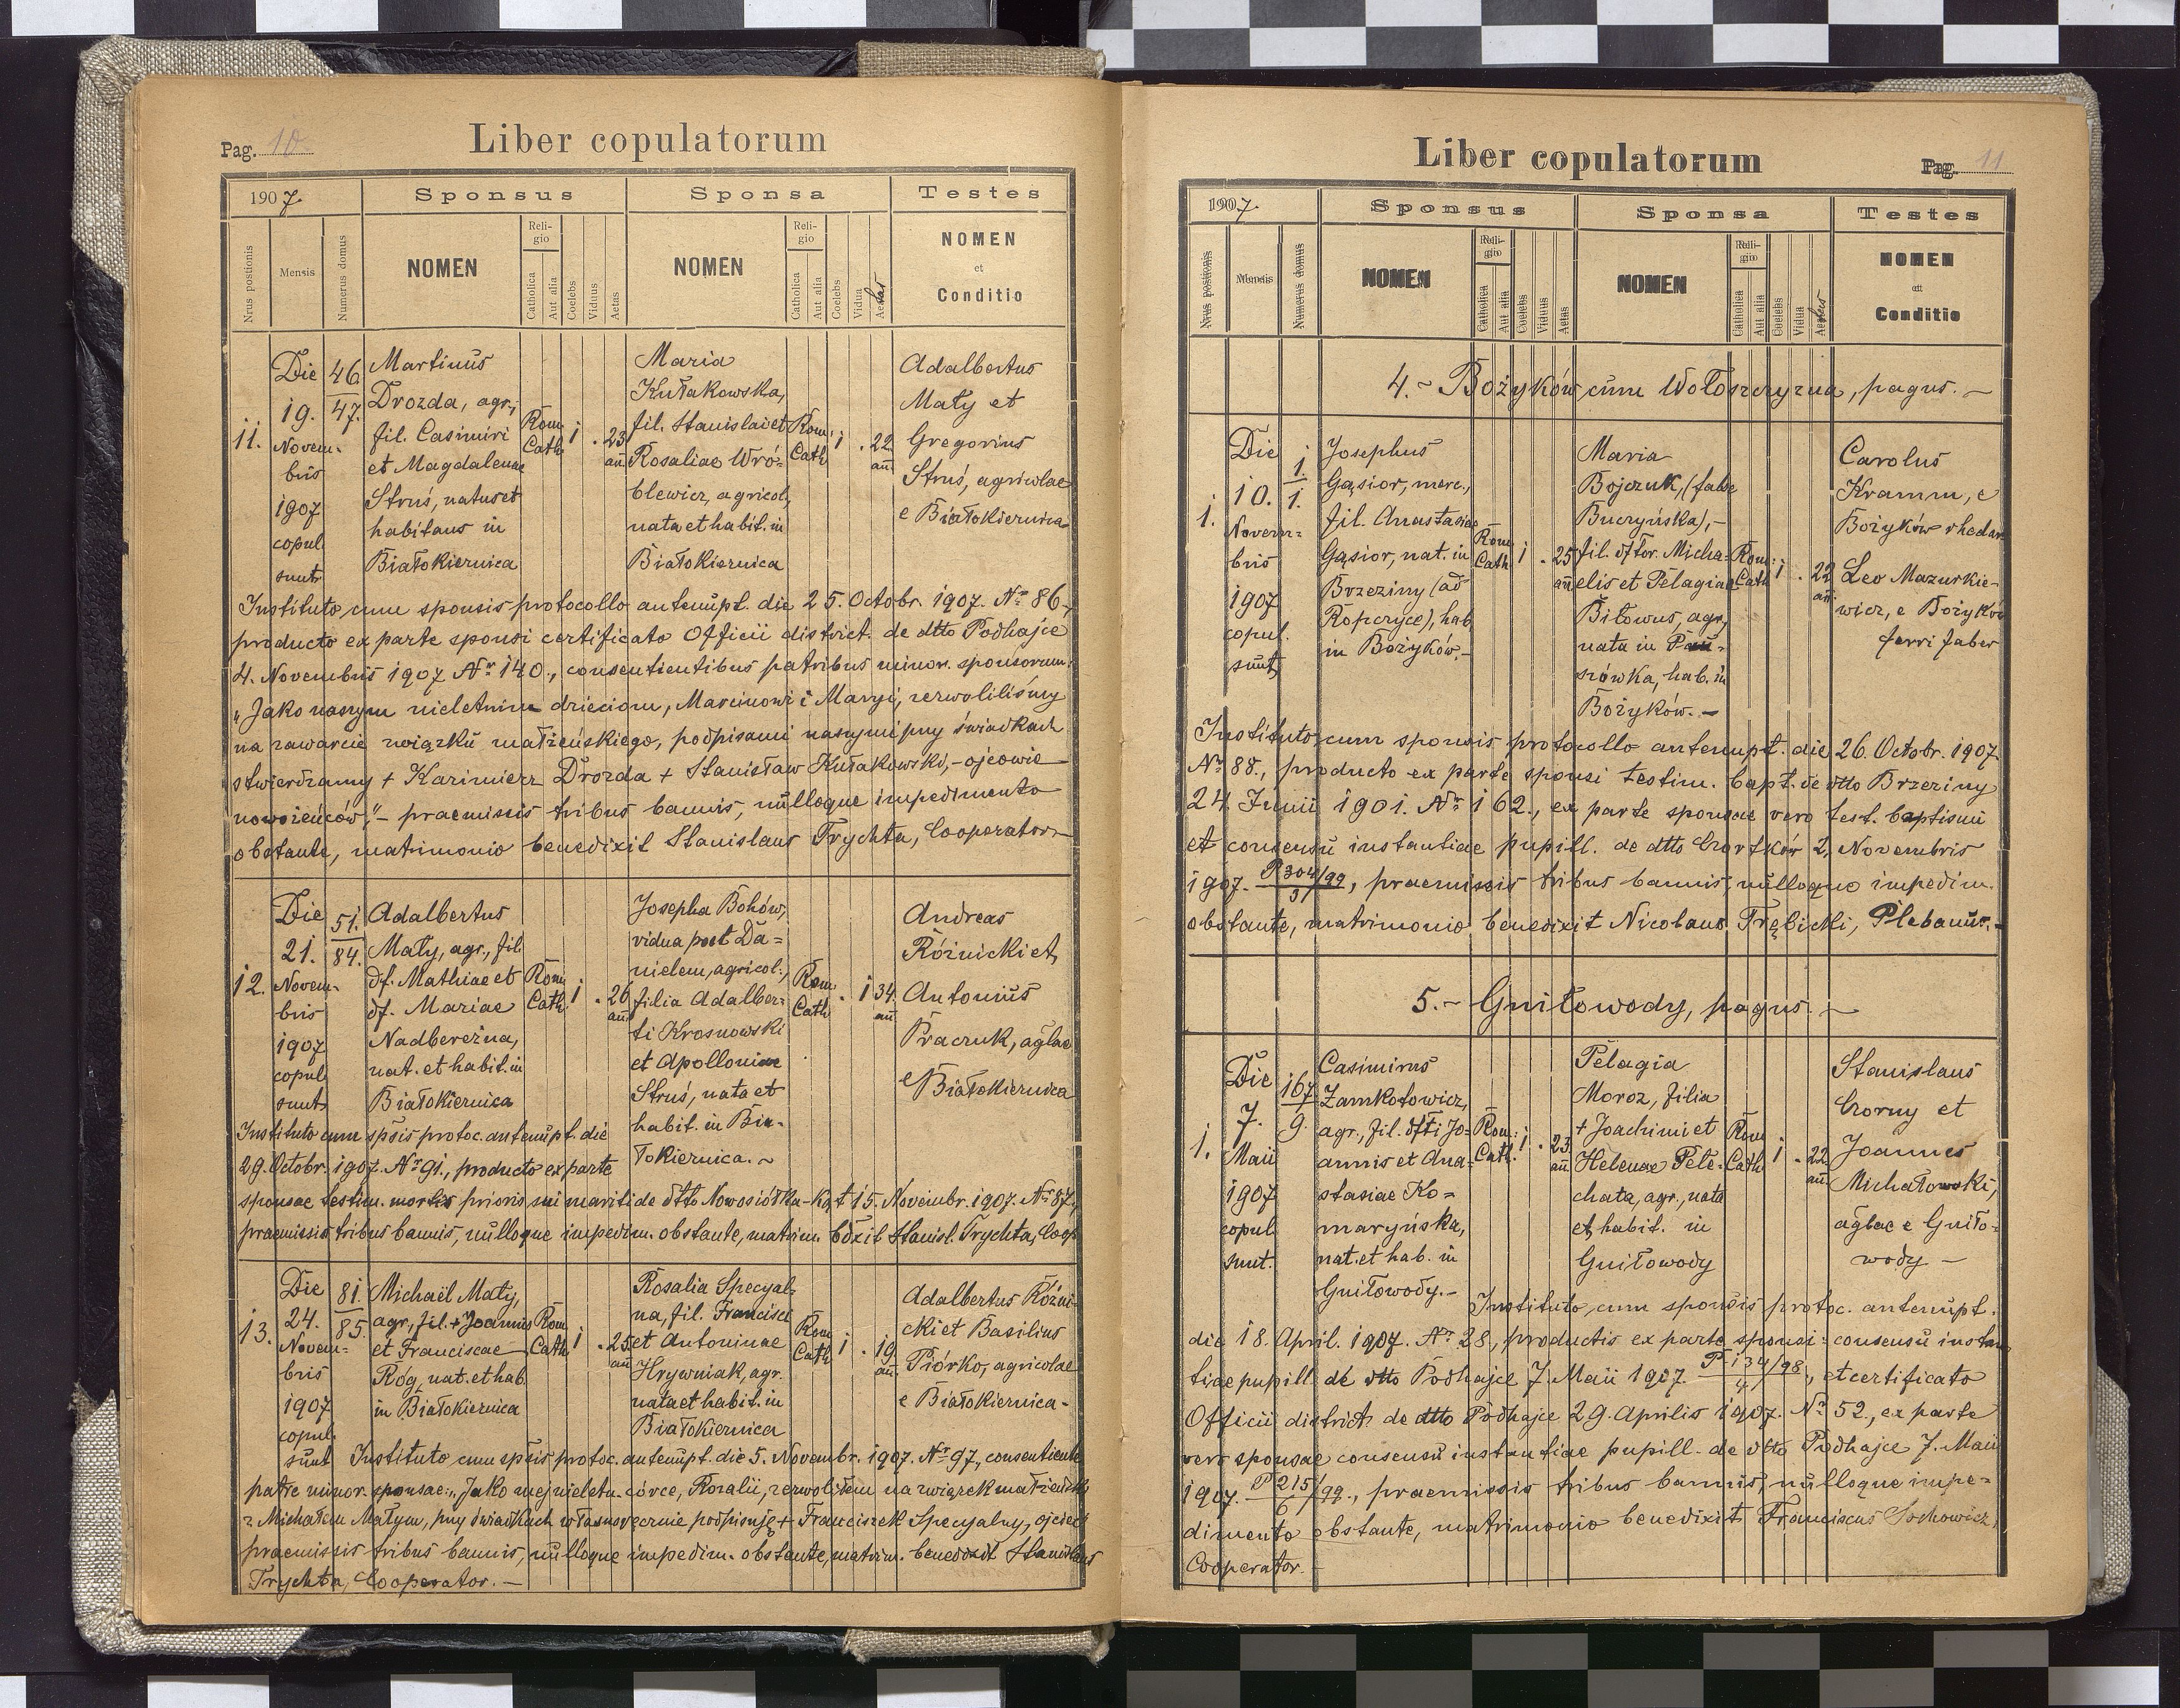 Pag. 10
Liber copulatorum
1907.
Sponsus
Sponsa
Testes
Nrus postionis
Mensis
Numerus domus
NOMEN
Religio
Catholica
Aut alia
Coelebs
Viduus
Aetas
NOMEN
Religio
Catholica
Aut alia
Coelebs
Vidua
Aetas
NOMEN
et
Conditio
11.
Die
19.
Novem-
bris
1907
copul.
sunt
46.
47.
Martinus
Drozda, agr.,
fil. Casimiri
et Magdalenae
Struś, natus et
habitans in
Białokiernica
Rom.
Cath.
1
.
23
an.
Maria
Kułakowska,
fil. Stanislai et
Rosaliae Wró-
blewicz, agricol.,
nata et habit. in
Białokiernica
Rom.
Cath.
1
.
22
an.
Adalbertus
Mały et
Gregorius
Struś, agricolae
e Białokiernica
Instituto cum sponsis protocollo antenupt. die 25. Octobr. 1907. Nr 86,
producto ex parte sponsi certificato Officii district. de dtto Podhajce
4. Novembris 1907 Nr 140., consentientibus patribus minor. sponsorum:
"Jako naszym nieletnim dzieciom, Marcinowi i Maryi, zezwoliliśmy
na zawarcie związku małżeńskiego, podpisami naszymi przy świadkach
stwierdzamy + Kazimierz Drozda + Stanisław Kułakowski, - ojcowie
nowożeńców", - praemissis tribus bannis, nulloque impedimento
obstante, matrimonio benedixit Stanislaus Trychta, Cooperator
12.
Die
21.
Novem-
bris
1907
copul.
sunt
51.
84.
Adalbertus
Mały, agr., fil.
df. Mathiae et
df. Mariae
Nadbereżna,
nat. et habit. in
Białokiernica
Rom.
Cath.
1
.
26
an.
Josepha Bohów,
vidua post Da-
nielem, agricol.,
filia Adalber-
ti Krosnowski
et Apolloniae
Struś, nata et
habit. in Bia-
łokiernica. ~
Rom.
Cath.
.
1
34.
an.
Andreas
Różnicki et
Antonius
Praczuk, aglae
e Białokiernica
Instituto cum spsis protoc. antenupt. die
29. Octobr. 1907. Nr 91., producto ex parte
sponsae testim. mortis prioris sui mariti de dtto Nowosiółka-Kat 15. Novembr. 1907. Nr 87,
praemissis tribus bannis, nulloque impedim. obstante, matrim. bdxit Stanisl. Trychta, Coop
13.
Die
24.
Novem-
bris
1907
copul.
sunt
81.
85.
Michaël Mały,
agr., fil. + Joannis
et Franciscae
Róg, nat. et hab.
in Białokiernica
Rom.
Cath.
1
.
25
an.
Rosalia Specyal-
na, fil. Francisci
et Antoninae
Hrywniak, agr.
nata et habit. in
Białokiernica
Rom.
Cath.
1
.
19.
an.
Adalbertus Różni-
cki et Basilius
Piórko, agricolae
e Białokiernica -
Instituto cum spsis protoc. antenupt. die 5. Novembr. 1907. Nr 97., consentiente
patre minor. sponsae: "Jako mej nieletn. córce, Rozalii, zezwoliłem na związek małżeński
z Michałem Małym, przy świadkach własnoręcznie podpisuję + Franciszek Specyalny, ojciec"
praemissis tribus bannis, nulloque impedim. obstante, matrim. benedixit Stanislaus
Trychta, Cooperator. -
Liber copulatorum
Pag. 11
1907.
Sponsus
Sponsa
Testes
Nrus postionis
Mensis
Numerus domus
NOMEN
Religio
Catholica
Aut alia
Coelebs
Viduus
Aetas
NOMEN
Religio
Catholica
Aut alia
Coelebs
Vidua
Aetas
NOMEN
et
Conditio
4. - Bożyków cum Wołoszczyzna, pagus. -
1.
Die
10.
Novem-
bris
1907
copul.
sunt
1.
1.
Josephus
Gąsior, merc.,
fil. Anastasiae
Gąsior, nat. in
Brzeziny (ad
Ropczyce), hab.
in Bożyków. -
Rom.
Cath.
1
.
25
an.
Maria
Bojczuk, (false
Buczyńska), -
fil. dftor. Micha-
elis et Pelagiae
Bitowus, agr.,
nata in Pau-
szówka, hab. in
Bożyków. -
Rom.
Cath.
1
.
22
an.
Carolus
Kramm, e
Bożyków rhedar.
Leo Mazurkie-
wicz, e Bożyków
ferri faber
Instituto cum sponsis protocollo antenupt. die 26. Octobr. 1907.
Nr 88., producto ex parte sponsi testim. bapt. de dtto Brzeziny
24. Junii 1901. Nr 162., ex parte sponsae vero test. baptismi
et consensu instantiae pupill. de dtto Czortków 2. Novembris
1907. P 304/99 / 3, praemissis tribus bannis, nulloque impedim.
obstante, matrimonio benedixit Nicolaus Trębicki, Plebanus. -
5. - Gniłowody, pagus. -
1.
Die
7.
Maii
1907
copul.
sunt.
167.
9.
Casimirus
Zamkotowicz,
agr., fil. dfti Jo-
annis et Ana-
stasiae Ko-
maryńska,
nat. et hab. in
Gniłowody. -
Rom.
Cath.
1
.
23
an.
Pelagia
Moroz, filia
+ Joachimi et
Helenae Pele-
chata, agr., nata
et habit. in
Gniłowody
Rom.
Cath.
1
.
22
an.
Stanislaus
Czorny et
Joannes
Michałowski,
aglae e Gniło-
wody -
Instituto cum sponsis protoc. antenupt.
die 18. April. 1907. Nr 28, productis ex parte sponsi: consensu instan
tiae pupill. de dtto Podhajce 7. Maii 1907. P 134/98 / 4, et certificato
Officii district. de dtto Podhajce 29. Aprilis 1907. Nr 52., ex parte
vero sponsae consensu instantiae pupill. de dtto Podhajce 7. Maii
1907. P 215/99 / 6., praemissis tribus bannis, nulloque impe-
dimento obstante, matrimonio benedixit Franciscus Sochowicz,
Cooperator.